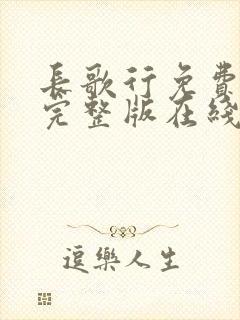 長歌行免費
完整版在綫
逗樂人生